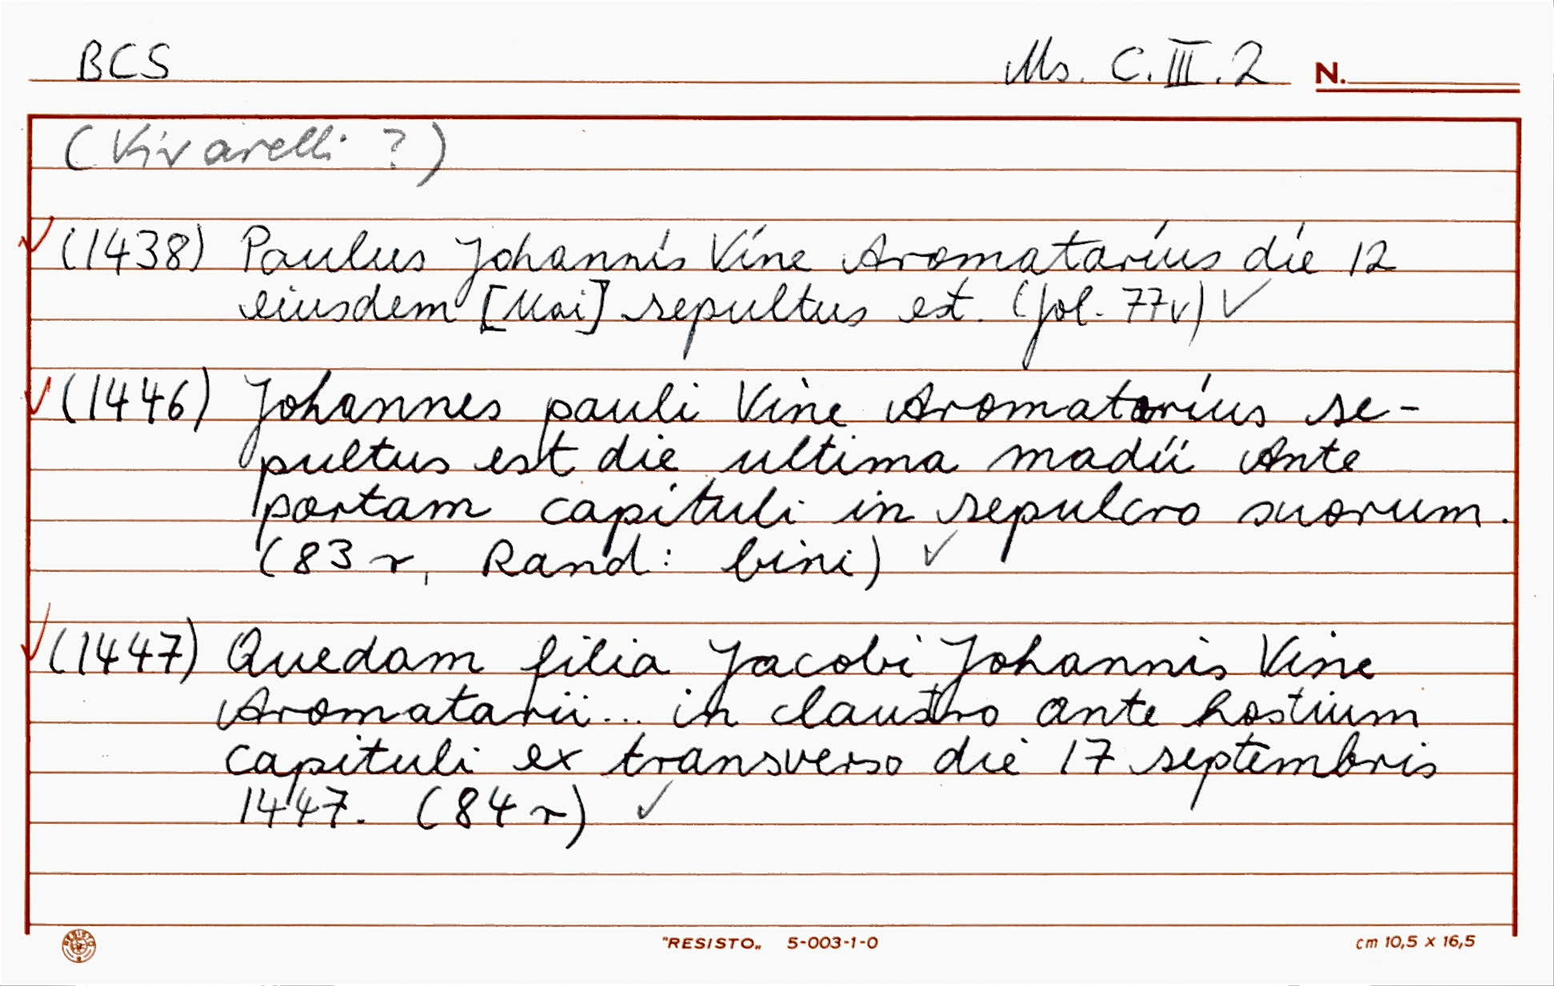 BCS Ms. C.III.2 N.
(Vivarelli ?)
(1438) Paulus Johannis Vine Aromatarius die 12
eiusdem [Mai] sepultus est. (fol. 77v) ✓
(1446) Johannes pauli Vine Aromatarius se-
pultus est die ultima madii Ante
portam capituli in sepulcro suorum.
(83 r, Rand: bini) ✓
(1447) Quedam filia Jacobi Johannis Vine
Aromatarii... in claustro ante hostium
capituli ex transverso die 17 septembris
1447. (84 r) ✓
RESISTO
"RESISTO„ 5-003-1-0 cm 10,5 x 16,5